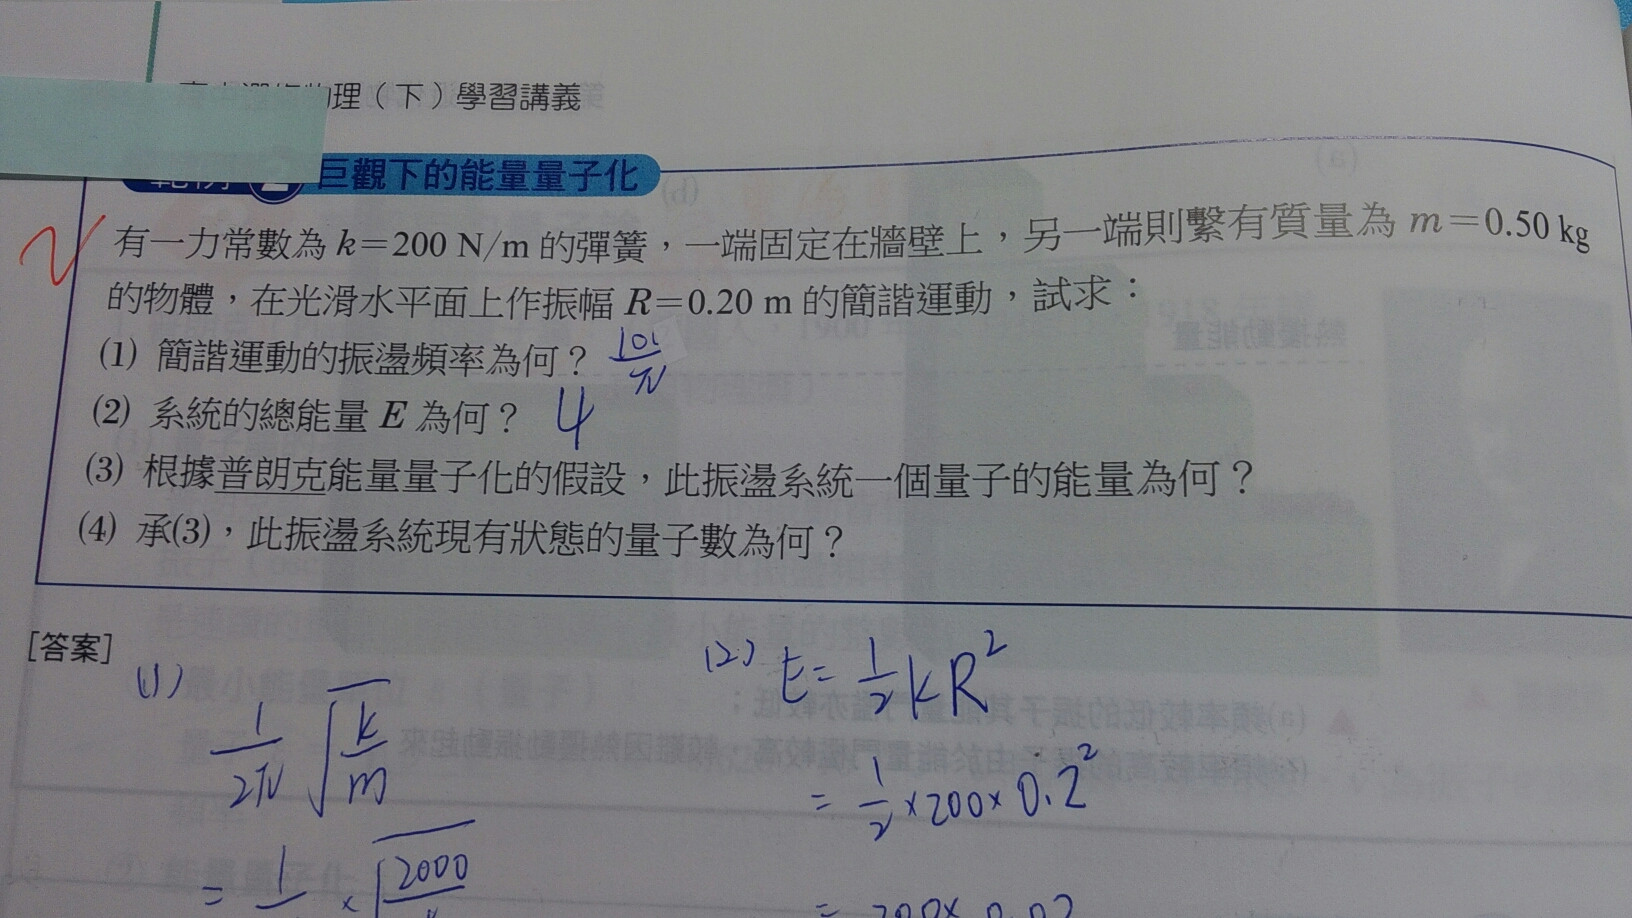 理（下）學習講義
2 巨觀下的能量量子化
有一力常數為 k=200 N/m 的彈簧，一端固定在牆壁上，另一端則繫有質量為 m=0.50 kg
的物體，在光滑水平面上作振幅 R=0.20 m 的簡諧運動，試求：
(1) 簡諧運動的振盪頻率為何？ 10/π
(2) 系統的總能量 E 為何？ 4
(3) 根據普朗克能量量子化的假設，此振盪系統一個量子的能量為何？
(4) 承(3)，此振盪系統現有狀態的量子數為何？
[答案]
(1) (2) E=1/2 kR²
1/2π √k/m
= 1/2×200×0.2²
= 1/ × √2000/
= 200×0.02